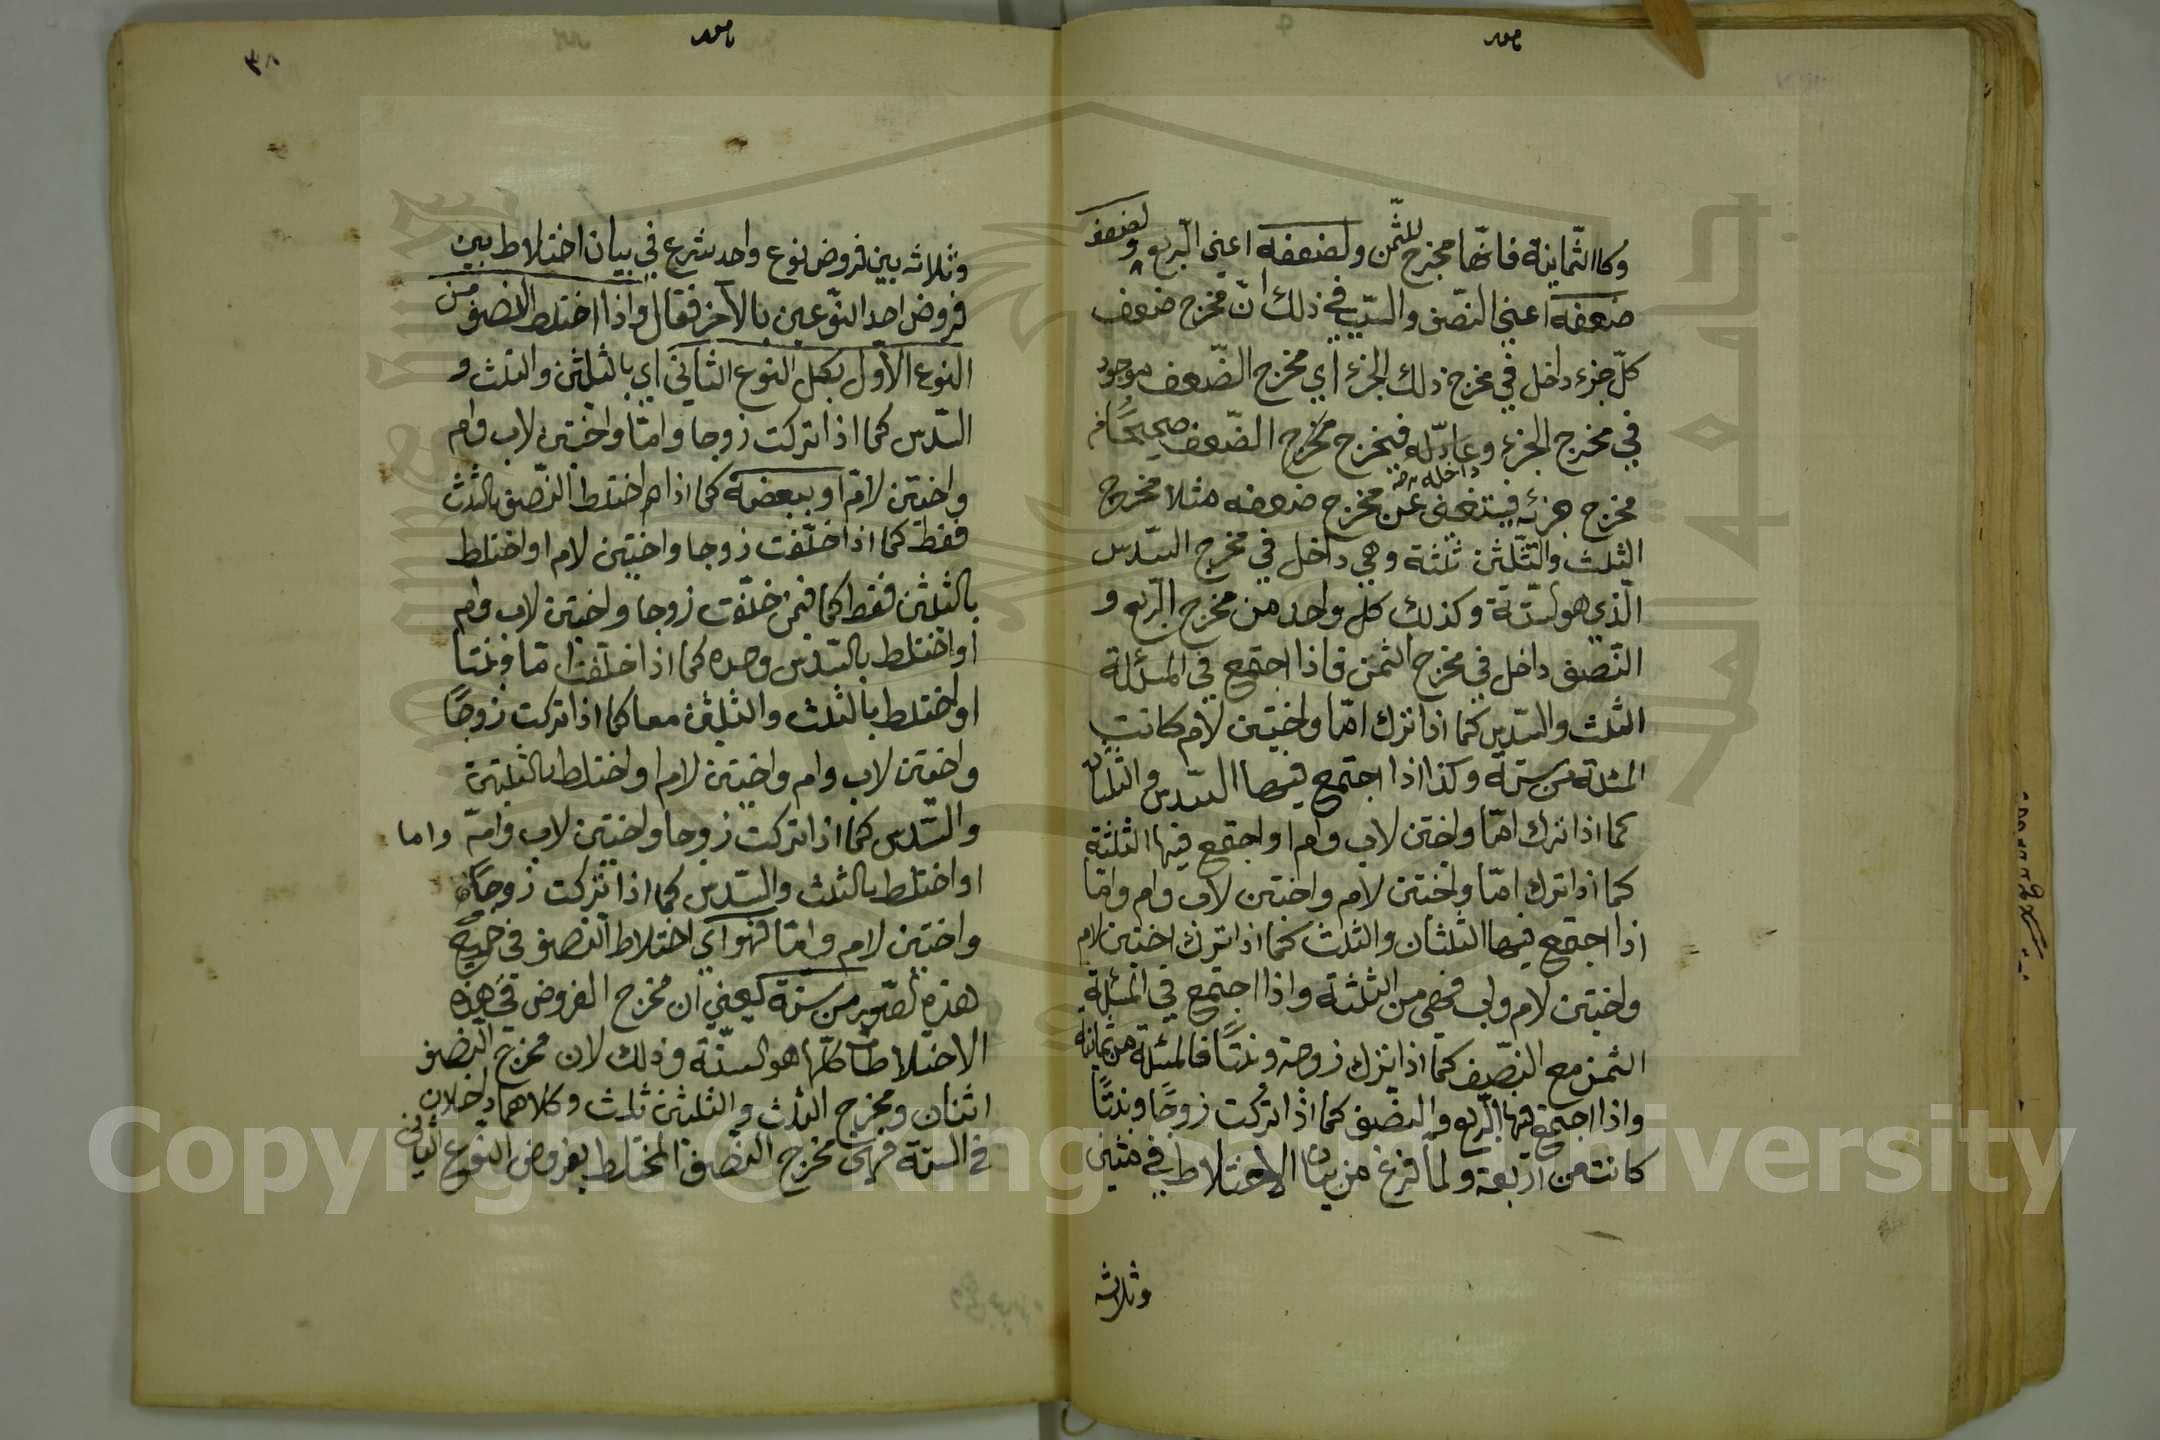 وكالثمانية فانها مخرج للثمن ولضعفه اعني الربع ولضعف
ضعفه اعني النصف والسبب في ذلك انّ مخرج ضعف
كلّ جزء داخل في مخرج ذلك الجزء اي مخرج الضّعف موجود
في مخرج الجزء وعادّ له فيخرج مخرج الضّعف صحيحًا
داخله
مخرج جزئه فيستغنى عن مخرج ضعفه مثلا مخرج
الثلث والثّلثين ثلثة وهي داخل في مخرج السّدس
الّذي هو ستّة وكذلك كلّ واحد من مخرج الرّبع و
النّصف داخل في مخرج الثمن فاذا اجتمع في المسئلة
الثلث والسّدس كما اذا ترك امّا واختين لام كانت
المسئلة من ستة وكذا اذا اجتمع فيها السّدس والثلثان
كما اذا ترك امّا واختين لاب وام او اجتمع فيها الثلثة
كما اذا ترك امّا واختين لام واختين لاب وام وامّا
اذا اجتمع فيها الثلثان والثلث كما اذا ترك اختين لام
واختين لام واب فهي من الثلثة واذا اجتمع في المسئلة
الثمن مع النصف كما اذا ترك زوجة وبنتًا فالمسئلة من ثمانية
واذا اجتمع فيها الرّبع والنصف كما اذا تركت زوجًا وبنتًا
كانت من اربعة ولما فرغ من بيان الاختلاط في مثنى
وثلاثه
٣٨
وثلاثه بين فروض نوع واحد شرع في بيان اختلاط بين
فروض احد النّوعين بالآخر فقال واذا اختلط النصف من
النوع الاول بكل النوع الثاني اي بالثلثين والثلث و
السّدس كما اذا تركت زوجا وامّا واختين لاب وام
واختين لامّ او ببعضه كما اذا اختلط النّصف بالثلث
فقط كما اذا خلّفت زوجا واختين لام او اختلط
بالثلثين فقط كما فيمن خلّفت زوجا واختين لاب وام
او اختلط بالسّدس وحده كما اذا خلّفت امّا وبنتا
او اختلط بالثلث والثلثين معا كما اذا تركت زوجًا
واختين لاب وام واختين لام او اختلط بالثلثين
والسّدس كما اذا تركت زوجا واختين لاب وامّ واما
او اختلط بالثلث والسّدس كما اذا تركت زوجًا
واختين لام وامّا فهو اي اختلاط النصف في جميع
هذه الصّور من ستة يعني ان مخرج الفروض في هذه
الاختلاطات كلّها هو الستّة وذلك لان مخرج النصف
اثنان ومخرج الثلث والثلثين ثلث وكلاهما داخلان
في الستة فهي مخرج النّصف المختلط بفروض النوع الثاني
Copyright © King Saud University
جامعة الملك سعود